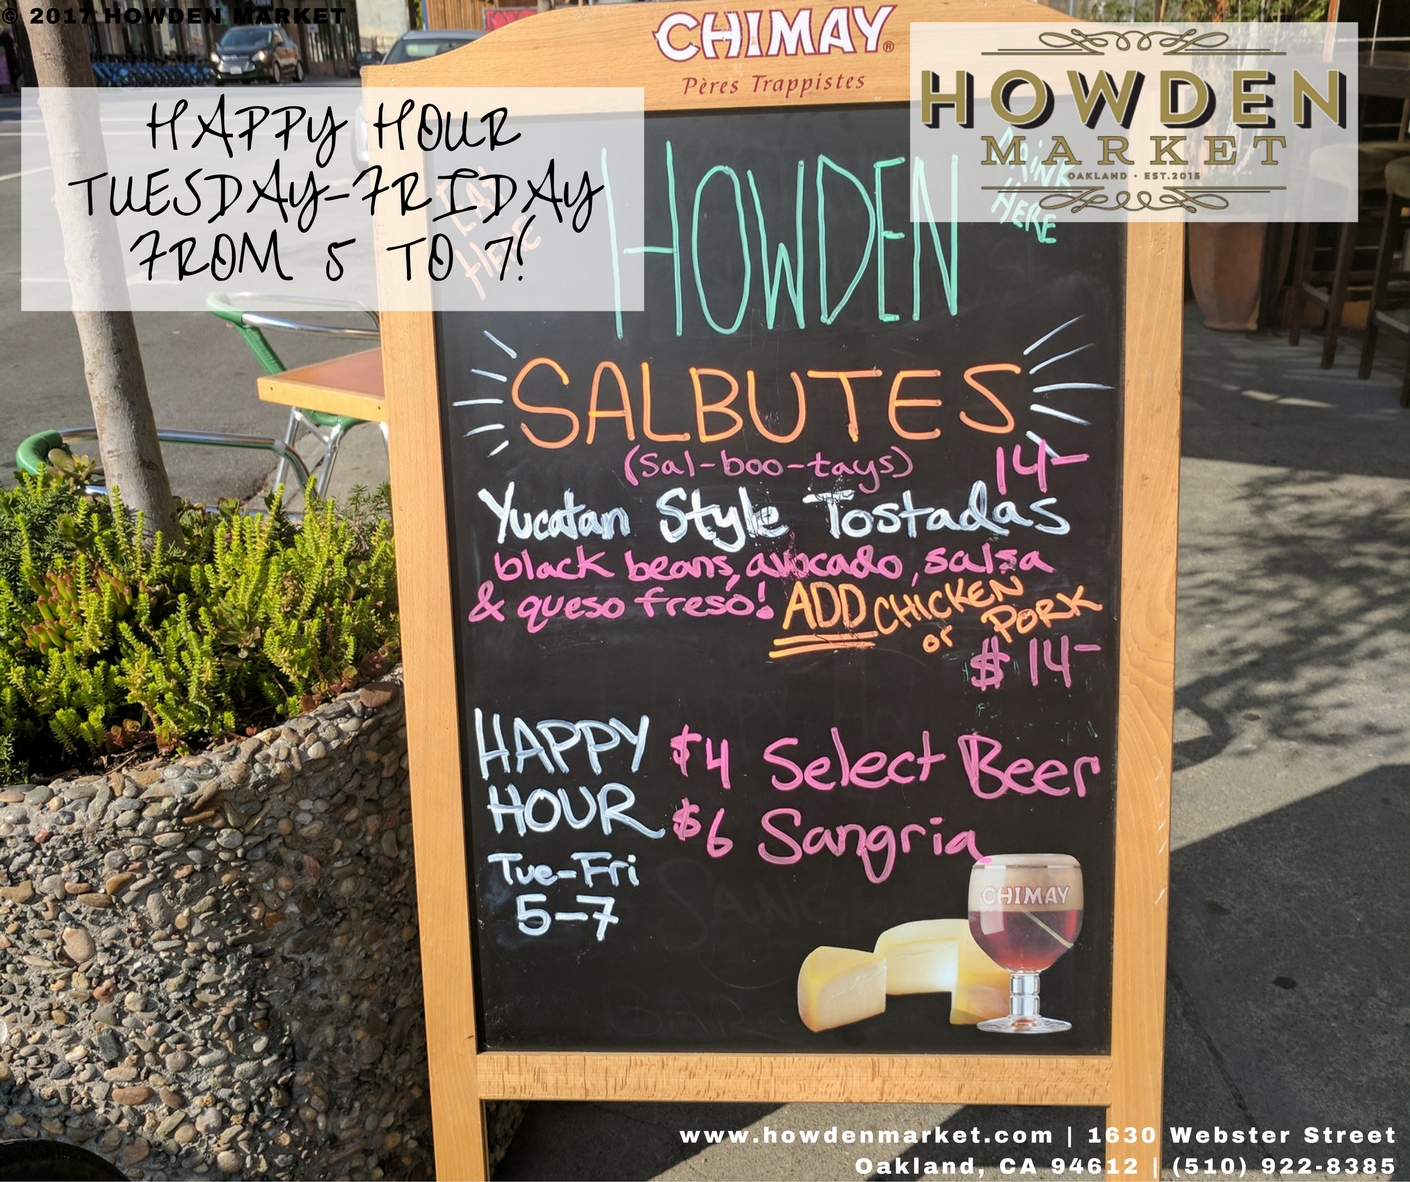 © 2017 HOWDEN MARKET
CHIMAY®
Pères Trappistes
HOWDEN
MARKET
OAKLAND • EST.2015
HAPPY HOUR
TUESDAY-FRIDAY
FROM 5 TO 7!
EAT
HERE
HOWDEN
DRINK
HERE
SALBUTES
(sal-boo-tays) 14-
Yucatan Style Tostadas
black beans, avocado, salsa
& queso freso! ADD CHICKEN
or PORK
$14-
HAPPY
HOUR
Tue-Fri
5-7
$4 Select Beer
$6 Sangria
CHIMAY
www.howdenmarket.com | 1630 Webster Street
Oakland, CA 94612 | (510) 922-8385